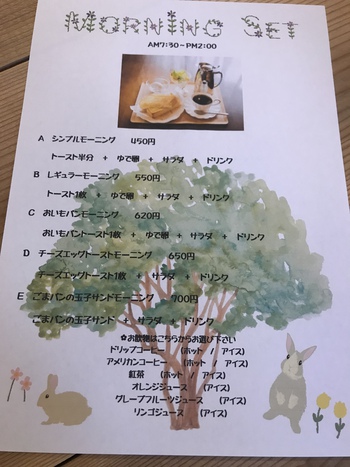 MORNING SET
AM7:30-PM2:00
A シンプルモーニング 450円
トースト半分 + ゆで卵 + サラダ + ドリンク
B レギュラーモーニング 550円
トースト1枚 + ゆで卵 + サラダ + ドリンク
C おいもパンモーニング 620円
おいもパントースト1枚 + ゆで卵 + サラダ + ドリンク
D チーズエッグトーストモーニング 650円
チーズエッグトースト1枚 + サラダ + ドリンク
E ごまパンの玉子サンドモーニング 700円
ごまパンの玉子サンド + サラダ + ドリンク
✿お飲物はこちらからお選び下さい
ドリップコーヒー (ホット / アイス)
アメリカンコーヒー (ホット / アイス)
紅茶 (ホット / アイス)
オレンジジュース (アイス)
グレープフルーツジュース (アイス)
リンゴジュース (アイス)